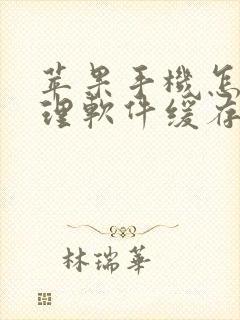 苹果手機怎
理軟件缓存
林瑞華